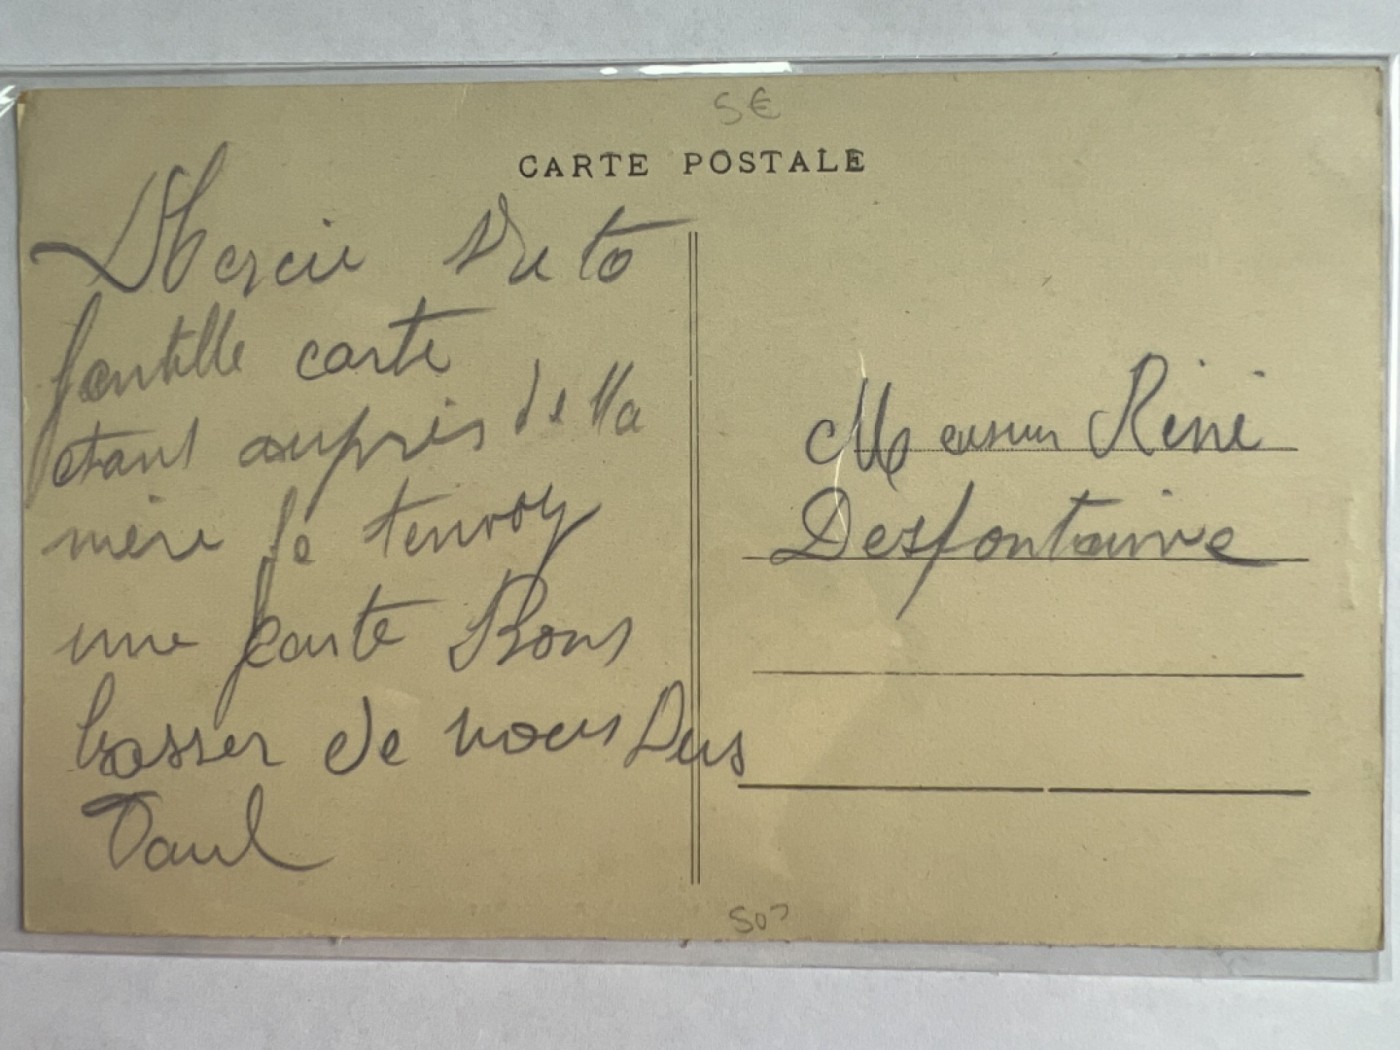 5€
CARTE POSTALE
Mercie de to
jentille carte
etant aupris de Ma
mère Je tenvoy
une carte Bons
basser de nous Dus
Paul
Monsieur Réné
Desfontaine